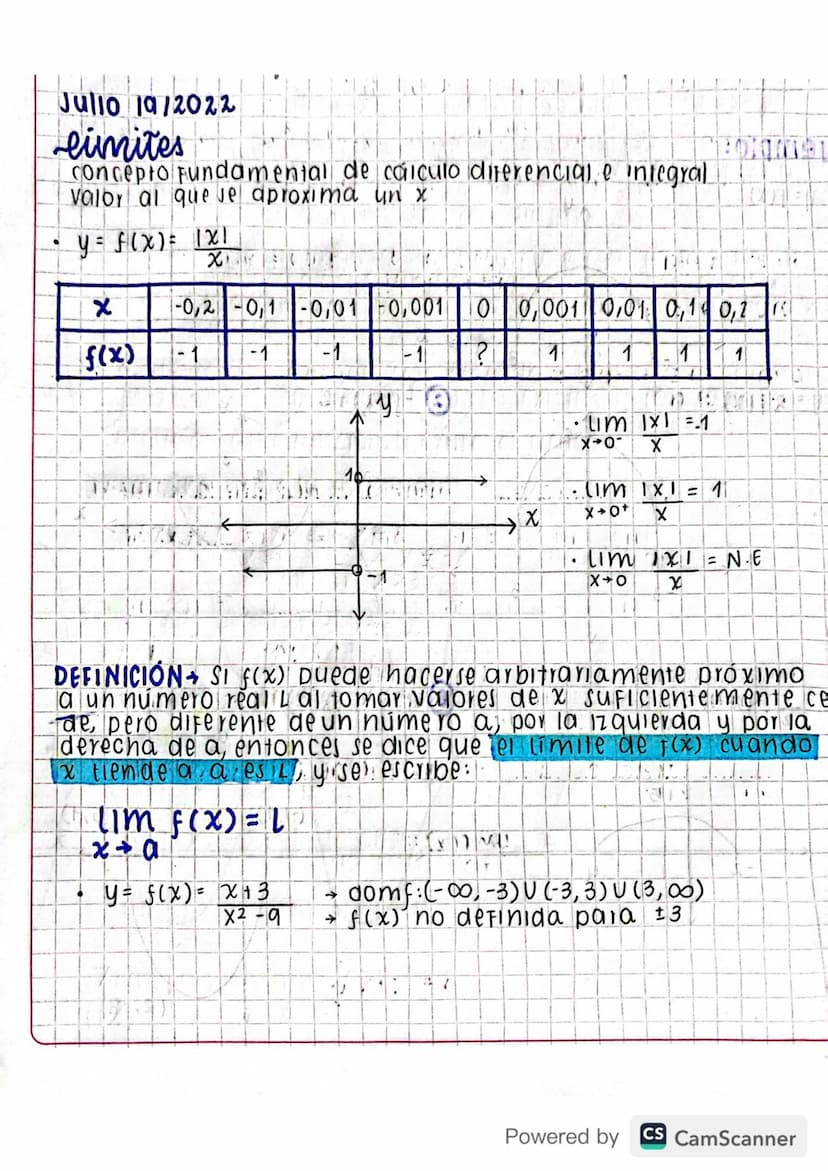 Julio 19/2022
Límites
concepto fundamental de cálculo diferencial e integral
valor al que se aproxima un x
• y = f(x) = |x|/x
x -0,2 -0,1 -0,01 -0,001 0 0,001 0,01 0,1 0,2
f(x) -1 -1 -1 -1 ? 1 1 1 1
y
1
x
-1
• lim x→0⁻ |x|/x = -1
• lim x→0⁺ |x|/x = 1
• lim x→0 |x|/x = N.E
DEFINICIÓN→ Si f(x) puede hacerse arbitrariamente próximo
a un número real L al tomar valores de x suficientemente ce
de, pero diferente de un número a, por la izquierda y por la
derecha de a, entonces se dice que el límite de f(x) cuando
x tiende a a es L, y se escribe:
lim f(x) = L
x→a
• y = f(x) = x+3/x²-9 → domf:(-∞,-3)U(-3,3)U(3,∞)
→ f(x) no definida para ±3
Powered by CS CamScanner